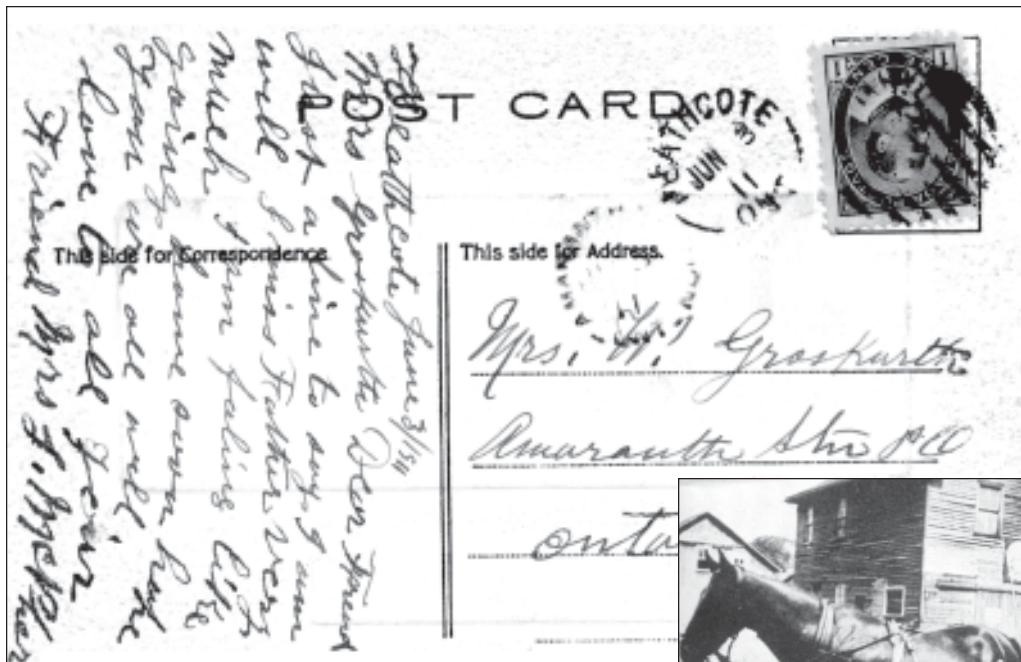 POST CARD
HEATHCOTE
JUN 3
11
ONT
This side for Correspondence.
This side for Address.
Heathcote June 3/1911
Mrs Groskurth Dear Friend
Just a line to say I am
well I miss Father very
Much I am
Going home soon hope
you are all well
love to all
Friend Mrs J.
Mrs. W. Groskurth
Amaranth Stn P.O
onta